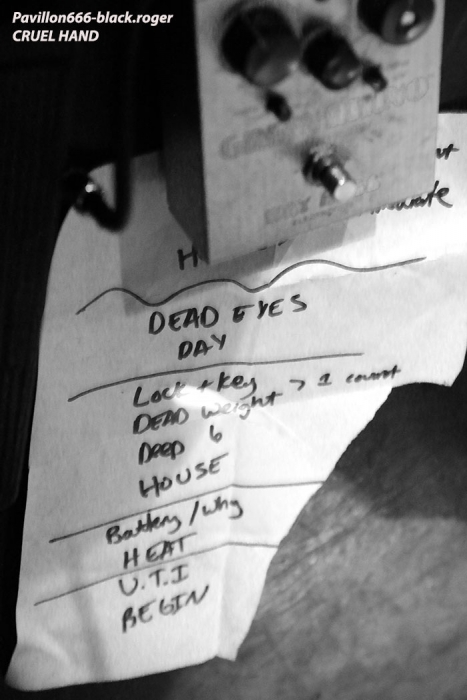 Pavillon666-black.roger
CRUEL HAND
H
DEAD EYES
DAY
Lock + Key
DEAD Weight > 1 count
Deep 6
HOUSE
Battery / Why
HEAT
U.T.I
BEGIN